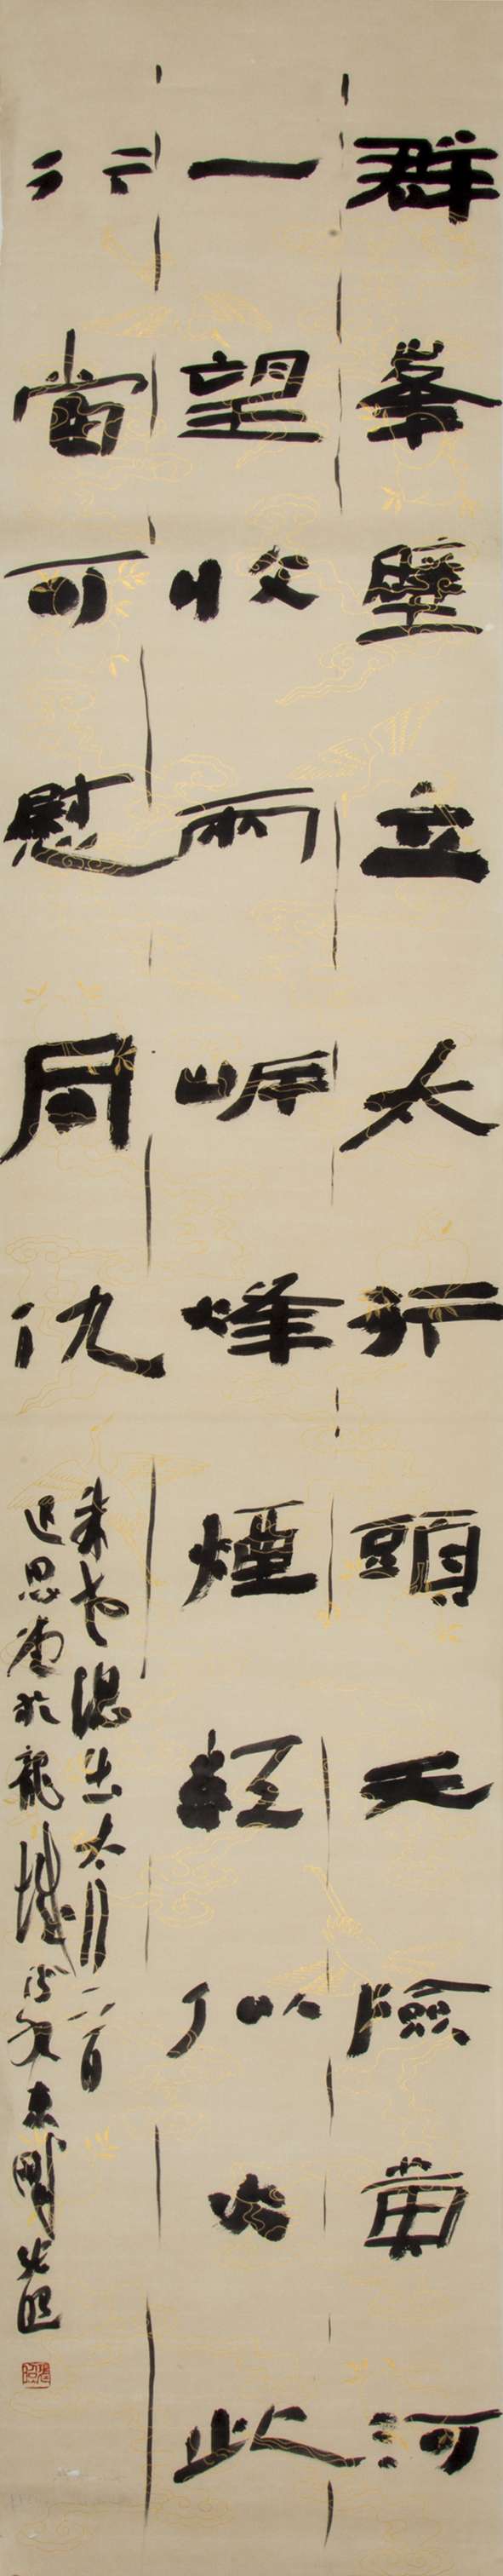 群峯壁立太行頭天險黄河
一望收兩岸烽煙紅似火此
行當可慰同仇
朱老總出太行一首
思於龍城